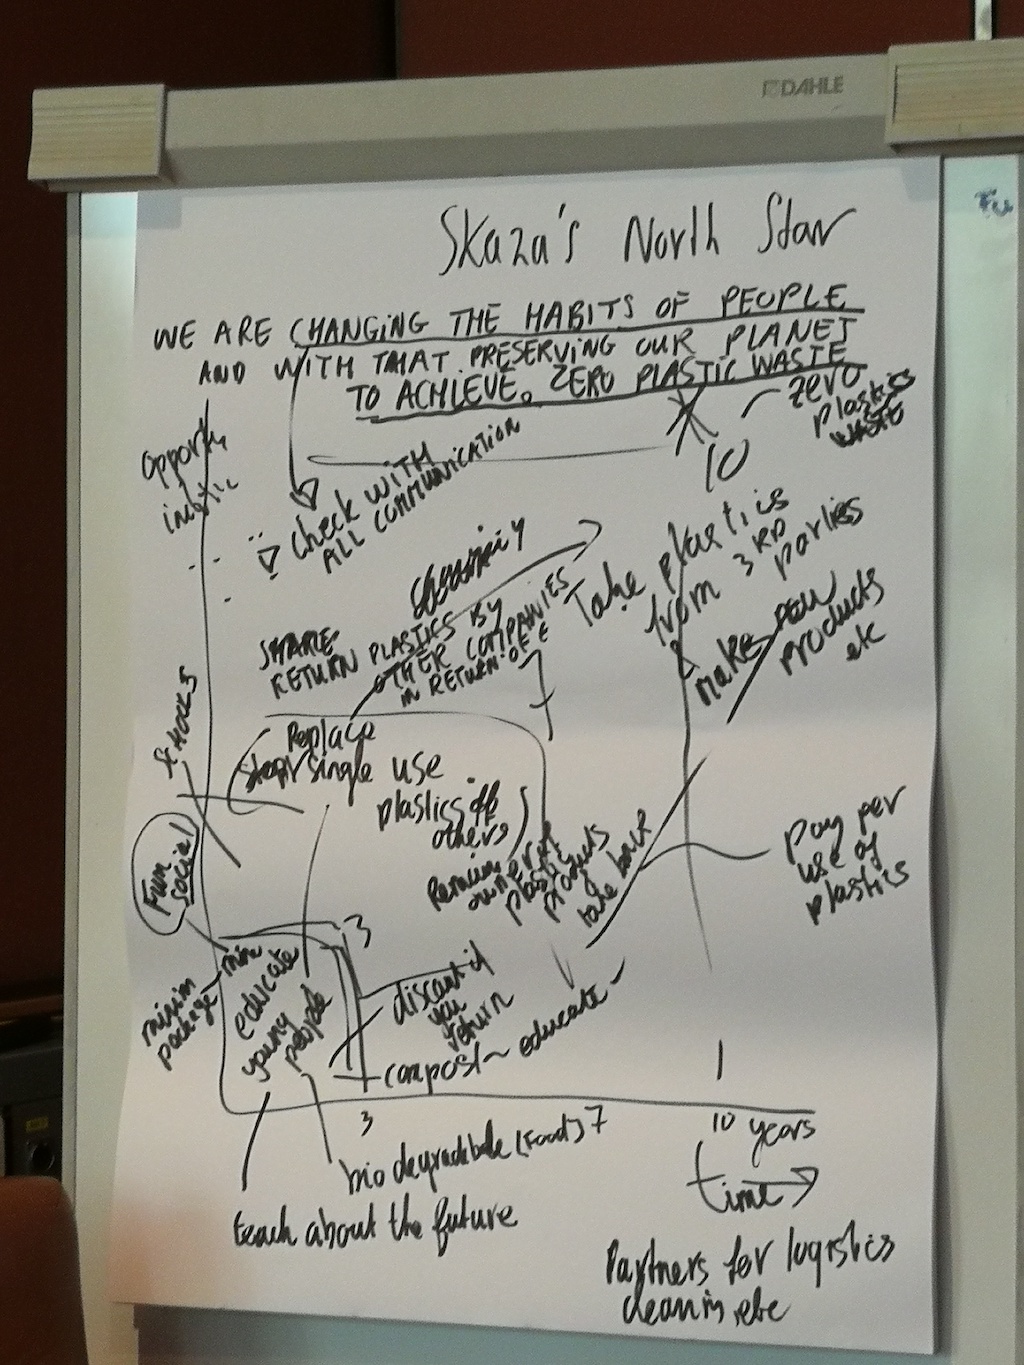 DAHLE
Skaza's North Star
WE ARE CHANGING THE HABITS OF PEOPLE
AND WITH THAT PRESERVING OUR PLANET
TO ACHIEVE ZERO PLASTIC WASTE
zero
plastics
WASTE
10
check WITH
ALL COMMUNICATION
Take plastics
from 3RD parties
make new
products
etc
SHARE
RETURN PLASTICS BY
OTHER COMPANIES
IN RETURN OF €
7
SCHOOLS
Replace
single use
plastics off
others
Remain
owner of
plastic
products
take back
pay per
use of
plastics
Fun
social
3
minim
package
educate
young
people
discount if
you
return
compost~ educate
3
10 years
time
biodegradable (Food) 7
teach about the future
Partners for logistics
cleaning etc